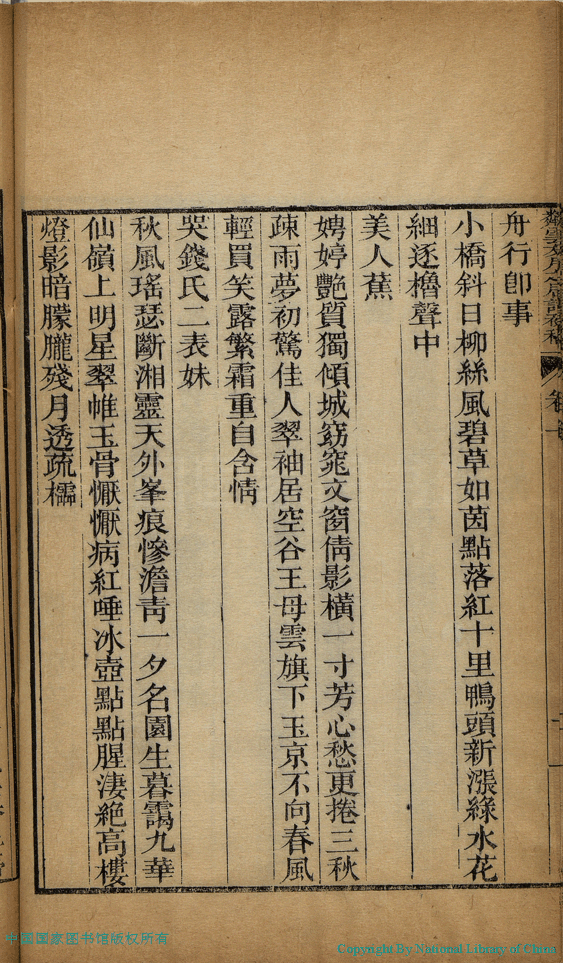 舟行卽事
小橋斜日柳絲風碧草如茵點落紅十里鴨頭新漲綠水花
細逐櫓聲中
美人蕉
娉婷艷質獨傾城窈窕文窗倩影橫一寸芳心愁更捲三秋
疎雨夢初驚佳人翠袖居空谷王母雲旗下玉京不向春風
輕買笑露繁霜重自含情
哭錢氏二表妹
秋風瑤瑟斷湘靈天外峯痕慘澹靑一夕名園生暮靄九華
仙嶺上明星翠帷玉骨懨懨病紅唾冰壺點點腥淒絕高樓
燈影暗朦朧殘月透疏櫺
中国国家图书馆版权所有
Copyright By National Library of China